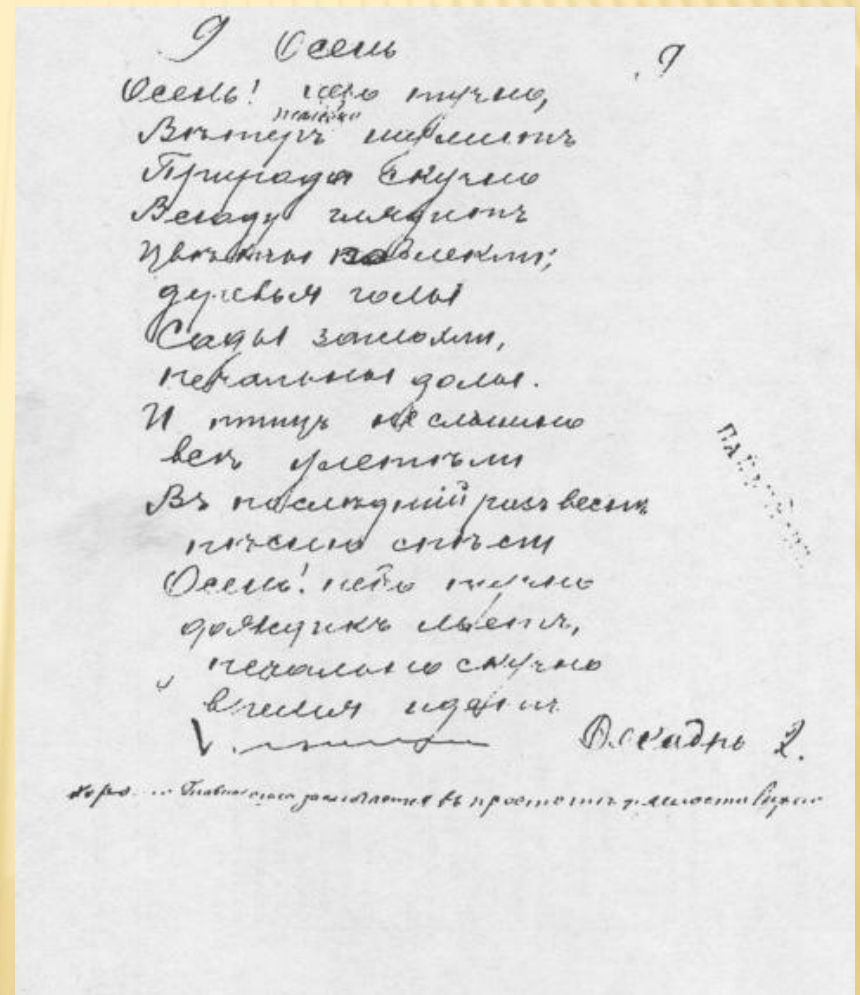 9 Осень 9
Осень! небо тучно,
Вѣтеръ шумитъ
Природа скучно
Всюду глядитъ
Цвѣты поблекли;
деревья голы
Сады заглохли,
печальны долы.
И птицъ не слышно
всѣ улетѣли
Въ послѣдній разъ веснѣ
пѣсню спѣли
Осень! небо тучно
дождикъ льетъ,
печально скучно
время идетъ
2.
въ простотѣ